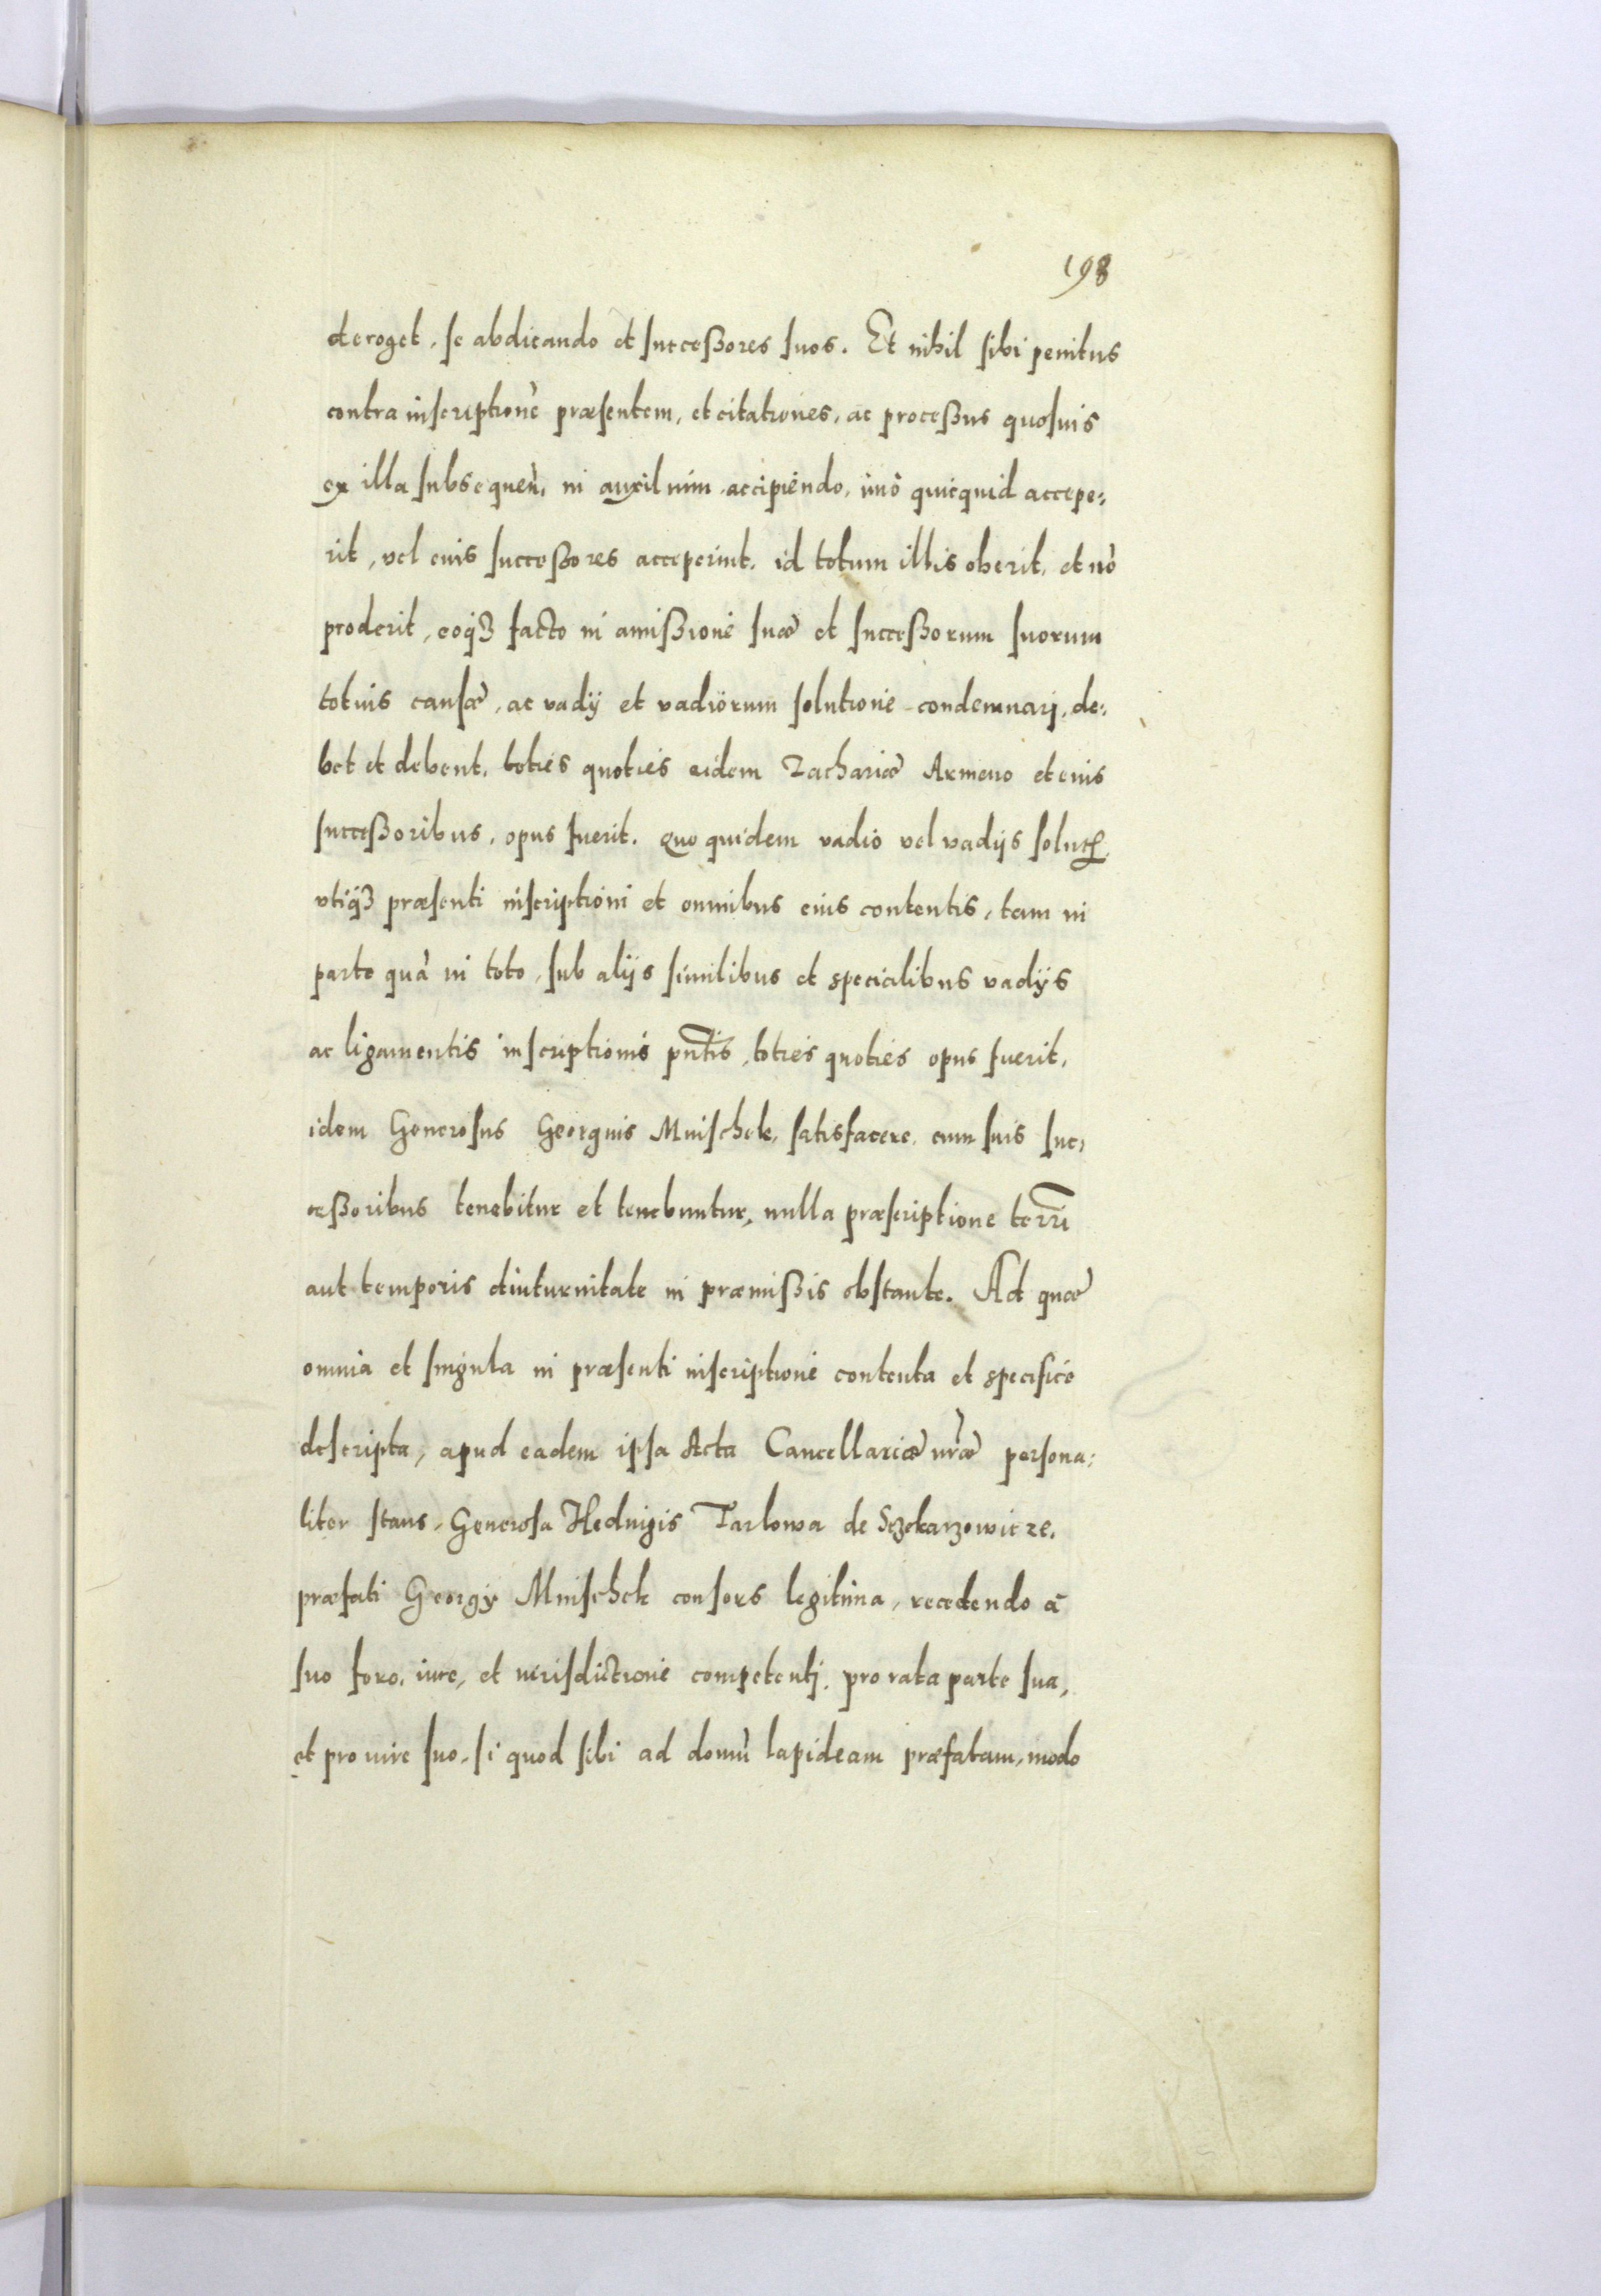 198
deroget, se abdicando et successores suos. Et nihil sibi penitus
contra inscriptionē præsentem, et citationes, ac processus quosuis
ex illa subsequeñ, in auxilium accipiendo, imò quicquid accepe:
rit, vel eius successores acceperint, id totum illis oberit, et nō
proderit, eoqꝫ facto in amissione suæ et successorum suorum
totius causæ, ac vadij et vadiorum solutione condemnarj, de:
bet et debent, toties quoties eidem Zachariæ Armeno et eius
successoribus, opus fuerit. Quo quidem vadio vel vadijs solut,
vtiqꝫ præsenti inscriptioni et omnibus eius contentis, tam in
parte quā in toto, sub alijs similibus et specialibus vadijs
ac ligamentis inscriptionis pñtis, toties quoties opus fuerit,
idem Generosus Georgius Mnischek, satisfacere, cum suis suc,
cessoribus tenebitur et tenebuntur, nulla præscriptione terrī
aut temporis diuturnitate in præmissis obstante. Ad quæ
omnia et singula in præsenti inscriptione contenta et specifice
descripta, apud eadem ipsa Acta Cancellariæ nræ persona:
liter stans, Generosa Heduigis Tarlowa de Sczekarzowicze,
præfati Georgy Mnischek consors legitima, recedendo à
suo foro, iure, et iurisdictione competentj, pro rata parte sua,
et pro iure suo, si quod sibi ad domū lapideam præfatam, modo